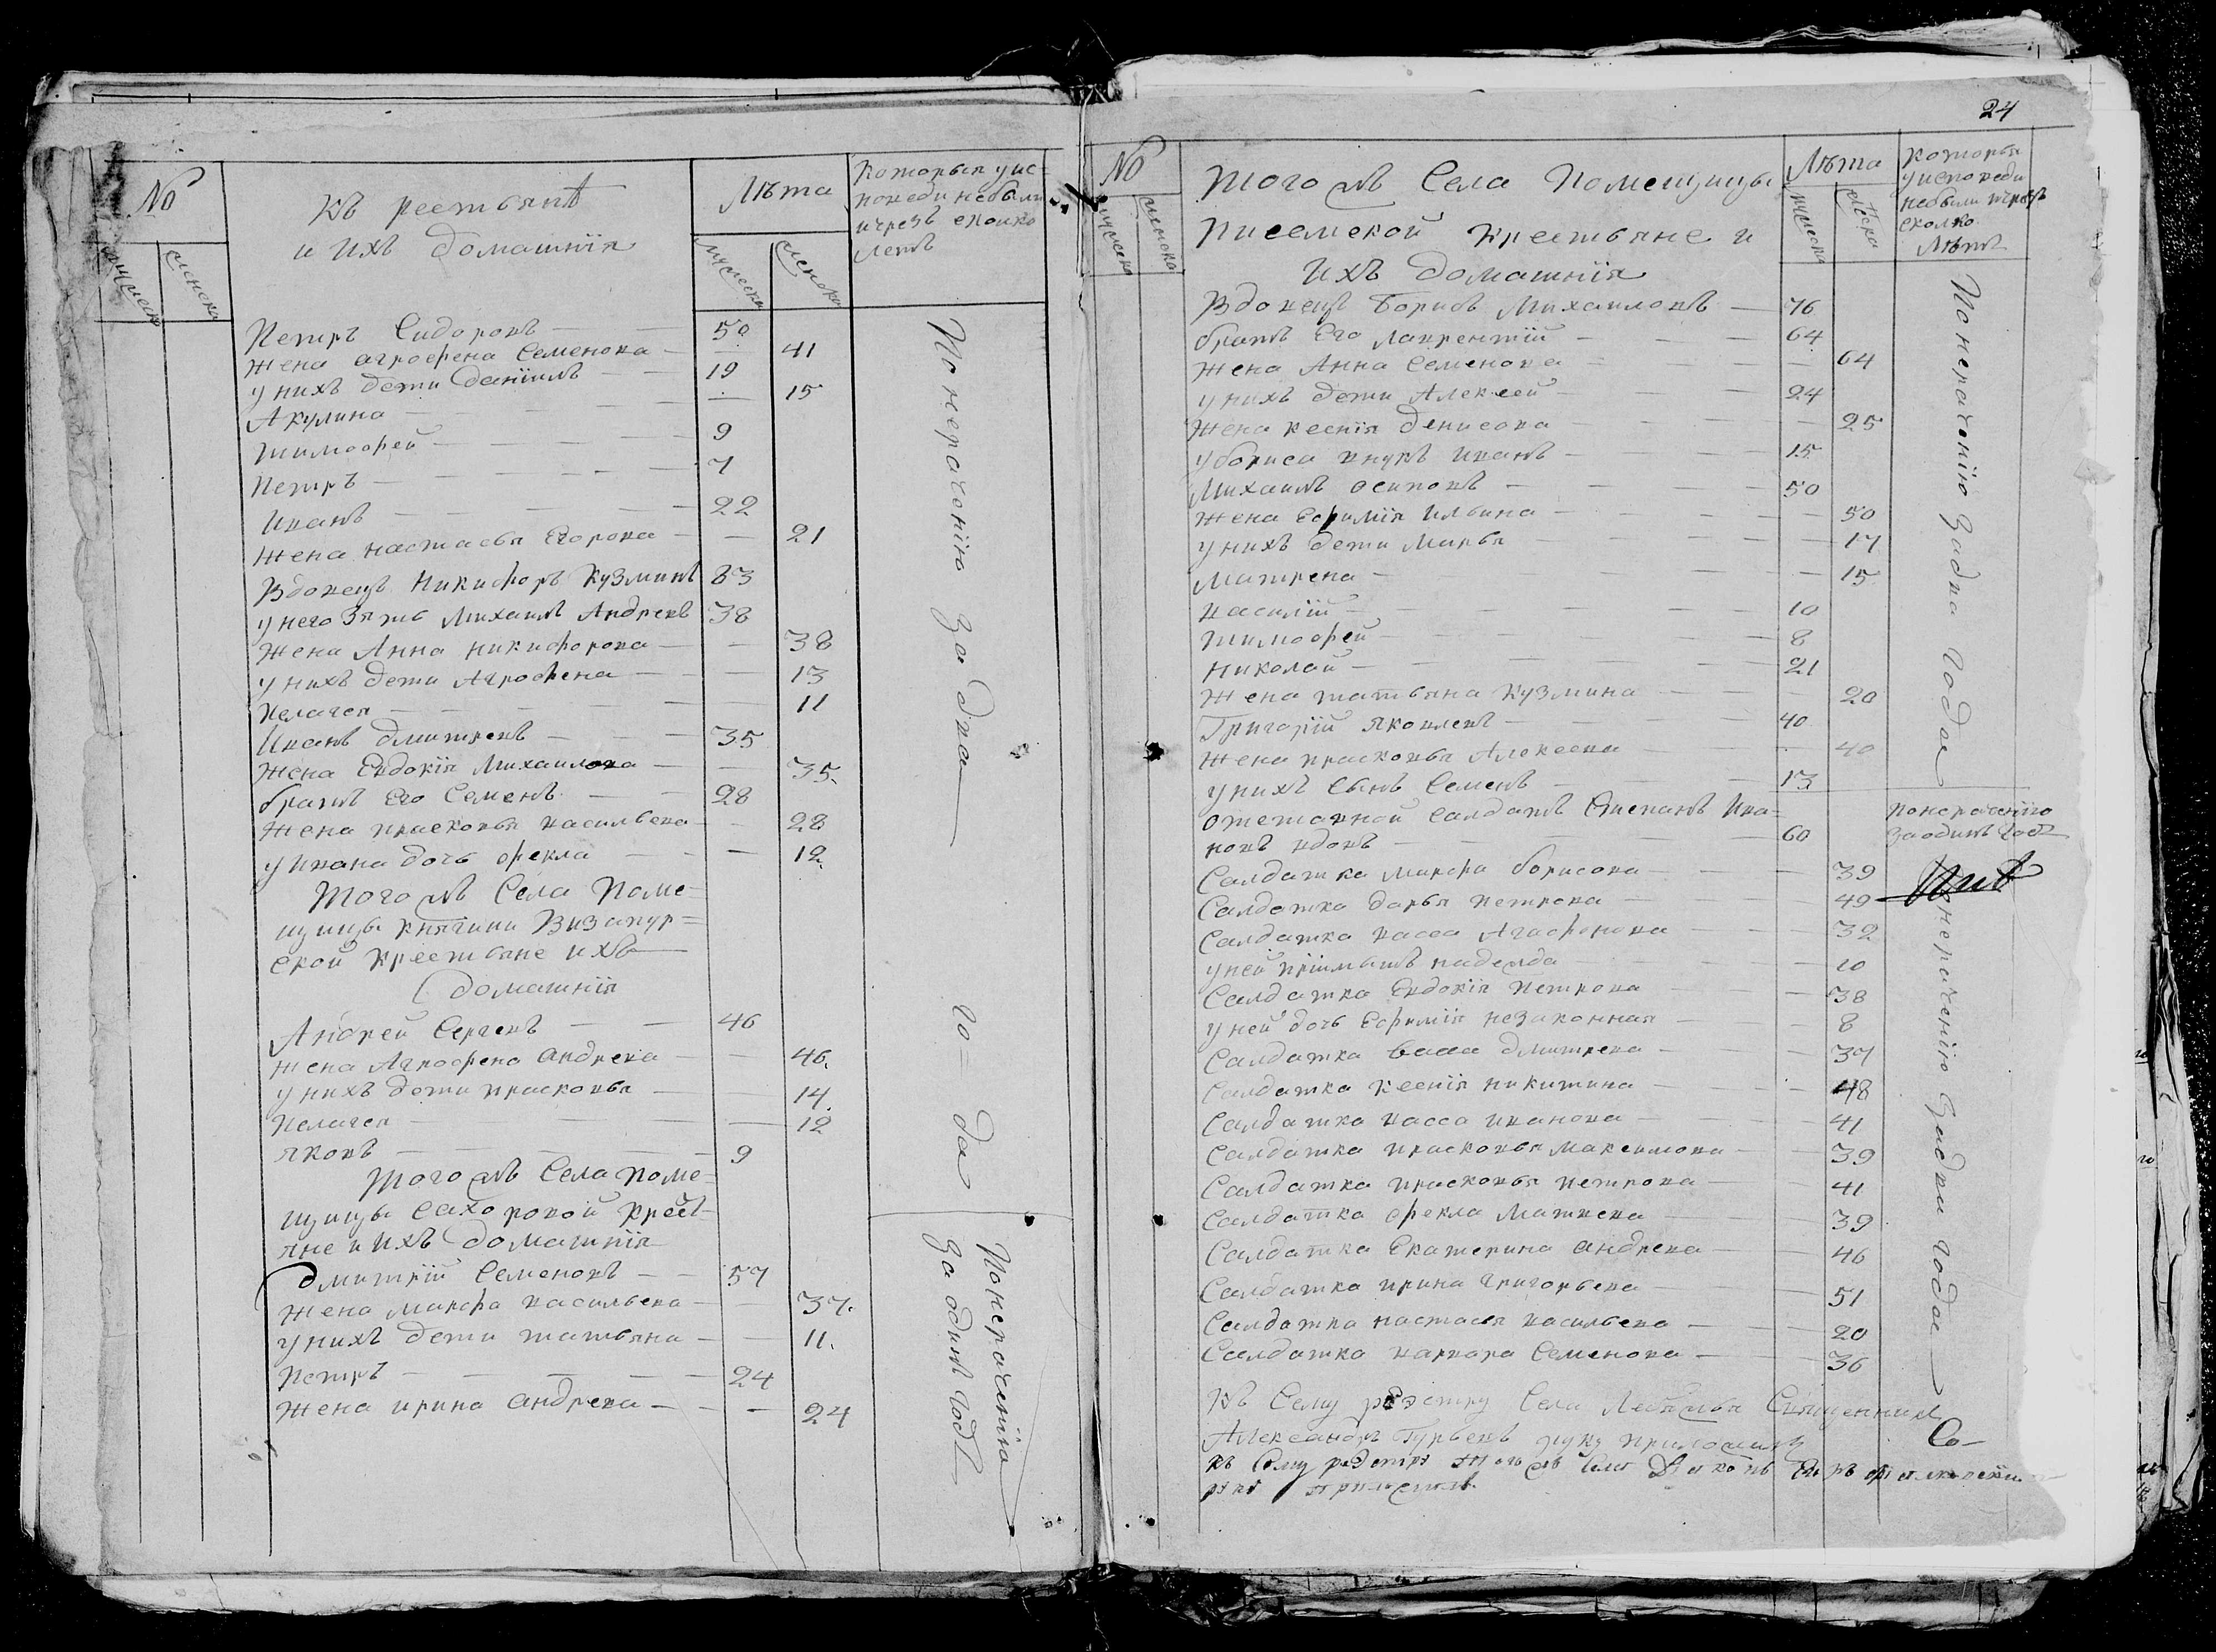 No
мужеска
женска
Къ рестьянѣ
и ихъ домашнія
Лѣта
мужеска
женска
Которыя у ис=
поведи небыли
ичрезъ сколко
летъ
Петръ Сидоровъ — 50
жена агрофена Семенова — 41
у нихъ дети даніилъ — 19
Акулина — 15
тимофей — 9
Петръ — 7
Иванъ — 22
жена настасья Егорова — 21
Вдовецъ Никифоръ Кузминъ 83
у него Зять Михаилъ Андревъ 38
жена Анна никифорова — 38
у нихъ дети Агрофена — 13
пелагея — 11
Иванъ дмитревъ — 35
жена Евдокія Михаилова — 35.
братъ Его Семенъ — 28
жена прасковья васильева — 28
у Ивана дочь фекла — 12.
того жъ Села Поме=
щицы княгини Визапур=
ской крестьяне ихъ
домашнія
Андрей Сергевъ — 46
жена Агрофена андрева — 46.
у нихъ дети прасковья — 14.
Пелагея — 12
яковъ — 9
того жъ Села поме=
щицы Сахоровой крест=
яне и ихъ домашнія
дмитрій Семеновъ — 57
жена марфа васильева — 37.
у нихъ дети татьяна — 11.
Петръ — 24
жена ирина андрева — 24
По нерачению за два го=да
По нерачению
за одинъ годъ
24
No
мужеска
женска
того жъ Села Помещицы
Писемской крестьяне и
ихъ домашнія
Лѣта
мужеска
женска
которыя
у исповеди
небыли ичрезъ
сколко
Лѣтъ
Вдовецъ Борисъ Михаиловъ — 76
братъ Его лаврентій — 64
жена Анна Семенова — 64
у нихъ дети Алексей — 24
жена ксенія денисова — 25
у бориса внукъ иванъ — 15
Михаилъ осиповъ — 50
жена Ефимія Ильина — 50
у нихъ дети марья — 17
матрена — 15
василій — 10
тимофей — 8
николай — 21
жена татьяна кузмина — 20
Григорій яковлевъ — 40
жена прасковья Алексеева — 40
у нихъ сынъ Семенъ — 13
отставной салдатъ Степанъ Ива=
новъ вдовъ — 60
Салдатка марфа борисова — 39
Салдатка дарья петрова — 49
Салдатка васса Агафонова — 32
у ней пріимышъ надежда — 10
Салдатка Евдокія петрова — 38
у ней дочь Ефимія незаконная — 8
Салдатка васса дмитрева — 37
Салдатка ксенія никитина — 48
Салдатка васса иванова — 41
Салдатка прасковья максимова — 39
Салдатка прасковья петрова — 41
Салдатка фекла матвева — 39
Салдатка Екатерина андрева — 46
Салдатка ирина григорьева — 51
Салдатка настасья васильева — 20
Салдатка варвара Семенова — 36
По нерачению за два года
По нерачению
за одинъ годъ
По нерачению за два года
Къ Сему реэстру Села Священникъ
Александръ Гурьевъ руку приложилъ
Къ Сему того жъ Села
руку приложилъ